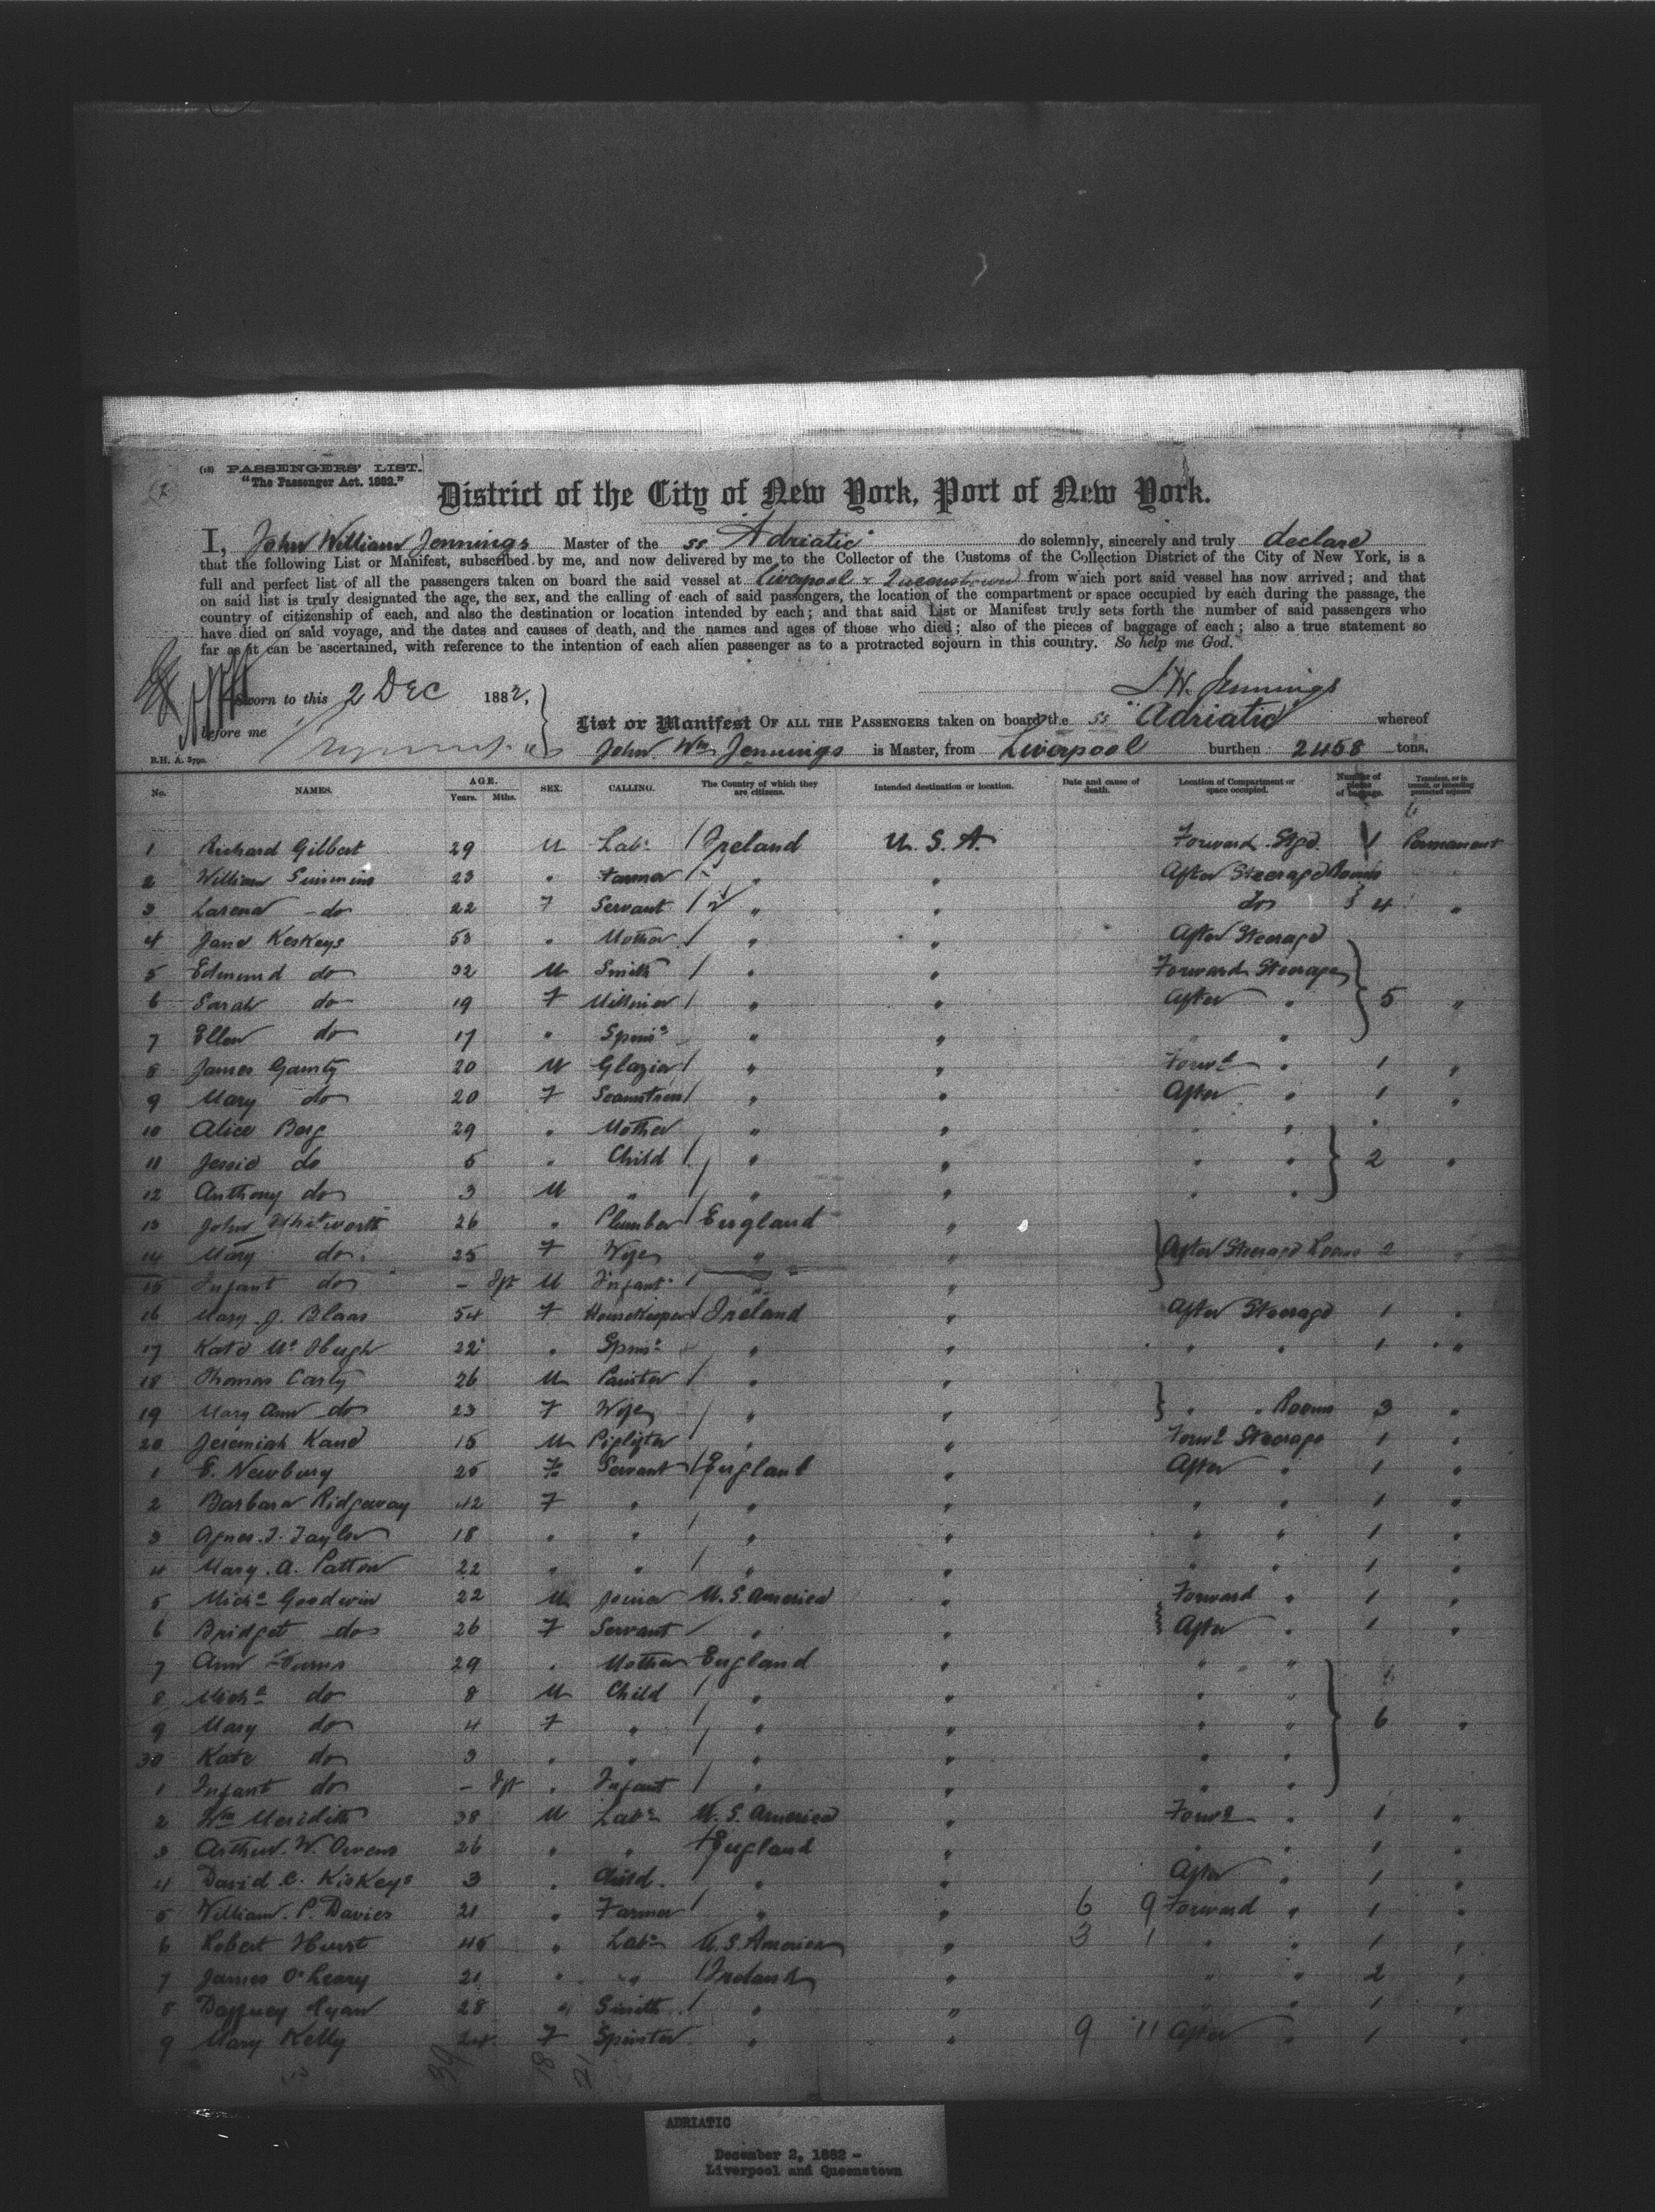 (18) PASSENGERS' LIST.
"The Passenger Act. 1882."
District of the City of New York, Port of New York.
I, John William Jennings Master of the ss Adriatic do solemnly, sincerely and truly declare
that the following List or Manifest, subscribed by me, and now delivered by me to the Collector of the Customs of the Collection District of the City of New York, is a
full and perfect list of all the passengers taken on board the said vessel at Liverpool & Queenstown from which port said vessel has now arrived; and that
on said list is truly designated the age, the sex, and the calling of each of said passengers, the location of the compartment or space occupied by each during the passage, the
country of citizenship of each, and also the destination or location intended by each; and that said List or Manifest truly sets forth the number of said passengers who
have died on said voyage, and the dates and causes of death, and the names and ages of those who died; also of the pieces of baggage of each; also a true statement so
far as it can be ascertained, with reference to the intention of each alien passenger as to a protracted sojourn in this country. So help me God.
Sworn to this 2 Dec 1882, J W. Jennings
before me
List or Manifest OF ALL THE PASSENGERS taken on board the ss "Adriatic" whereof
John Wm Jennings is Master, from Liverpool burthen 2458 tons.
R.H. A. 3790.
No. NAMES. AGE. Years. Mths. SEX. CALLING. The Country of which they are citizens. Intended destination or location. Date and cause of death. Location of Compartment or space occupied. Number of pieces of baggage. Transient, or in transit, or intending protracted sojourn
1 Richard Gilbert 29 M Labr / Ireland U. S. A. Forward Stgd. 1 Permanent
2 William Simmins 23 " Farmer / " " After Steerage Rooms
3 Larena do 22 F Servant / " " do } 4 "
4 Jane Keskeys 53 " Mother / " " After Steerage
5 Edmund do 32 M Smith / " " Forward Steerage
6 Sarah do 19 F Milliner / " " After " } 5 "
7 Ellen do 17 " Spinr " " " "
8 James Gamty 20 M Glazier / " " Forwd " 1 "
9 Mary do 20 F Seamstress / " " After " 1 "
10 Alice Berg 29 " Mother " " " "
11 Jessie do 5 " Child / " " " " } 2 "
12 Anthony do 3 M " / " " " "
13 John Whitworth 26 " Plumber / England "
14 Mary do 25 F Wife " " } After Steerage Rooms 2 "
15 Infant do – Ift M Infant / " "
16 Mary J. Blaas 54 F Housekeeper / Ireland " After Steerage 1 "
17 Kate Mc Hugh 22 " Spinr " " " " 1 "
18 Thomas Carty 26 M Painter / " "
19 Mary Ann do 23 F Wife / " " } " " Rooms 3 "
20 Jeremiah Kane 15 M " " Forwd Steerage 1 "
1 E. Newbury 25 F Servant / England " After " 1 "
2 Barbara Ridgeway 42 F " " " " " 1 "
3 Agnes J. Taylor 18 " " / " " " " 1 "
4 Mary A. Patton 22 " " / " " " " 1 "
5 Michl Goodwin 22 M Joiner U. S. America " Forward " 1 "
6 Bridget do 26 F Servant / " " After " 1 "
7 Ann 29 " Mother England " " "
8 Michl do 8 M Child / " " " "
9 Mary do 4 F " / " " " " } 6 "
30 Kate do 3 " " / " " " "
1 Infant do – Ift " Infant / " " " "
2 Wm Meridith 38 M Labr U. S. America " Forwd " 1 "
3 Arthur W. Owens 26 " " / England " " " 1 "
4 David C. Kiskeys 3 " Child " " After " 1 "
5 William P. Davies 21 " Farmer / " " 6 9 Forward " 1 "
6 Robert Hurst 45 " Labr U. S. America " 3 1 " " 1 "
7 James O'Leary 21 " " / Ireland " " " 2 "
8 Ryan 28 " Smith / " " " " 1 "
9 Mary Kelly 24 F Spinster " " 9 11 After " 1 "
39 18 21
ADRIATIC
December 2, 1882 –
Liverpool and Queenstown